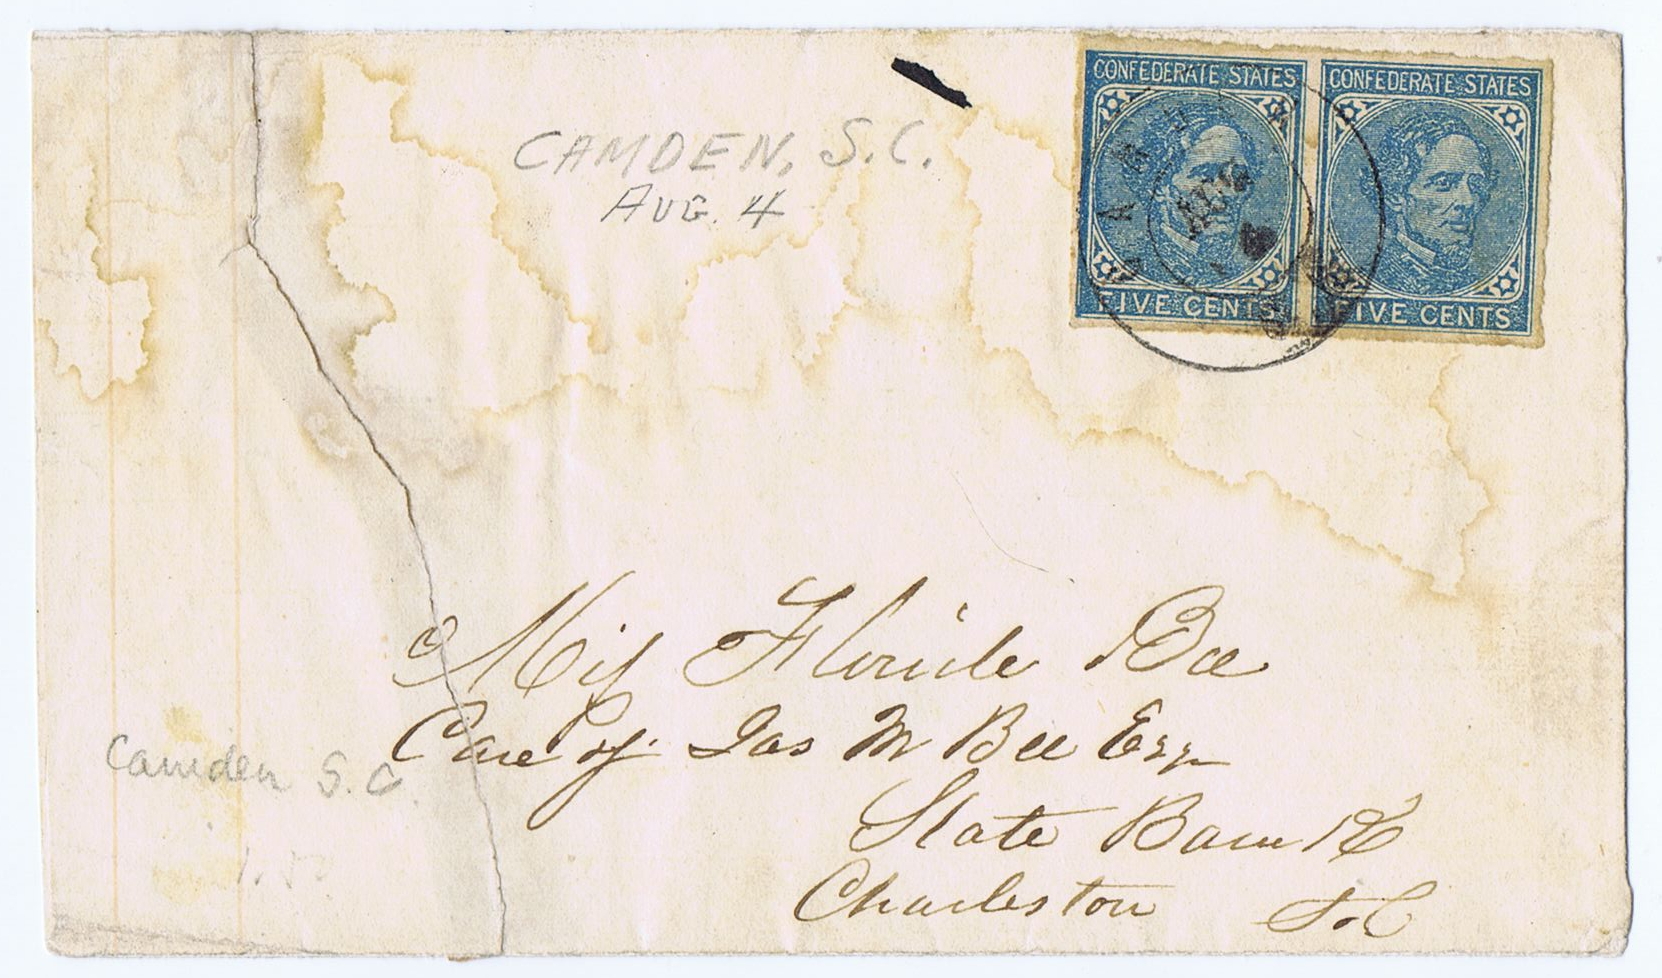 CONFEDERATE STATES
FIVE CENTS
CONFEDERATE STATES
FIVE CENTS
AUG
CAMDEN, S.C.
AUG. 4
Miss Floride Bee
Care of Jas M Bee Esq
State Bank
Charleston S.C
Camden S.C.